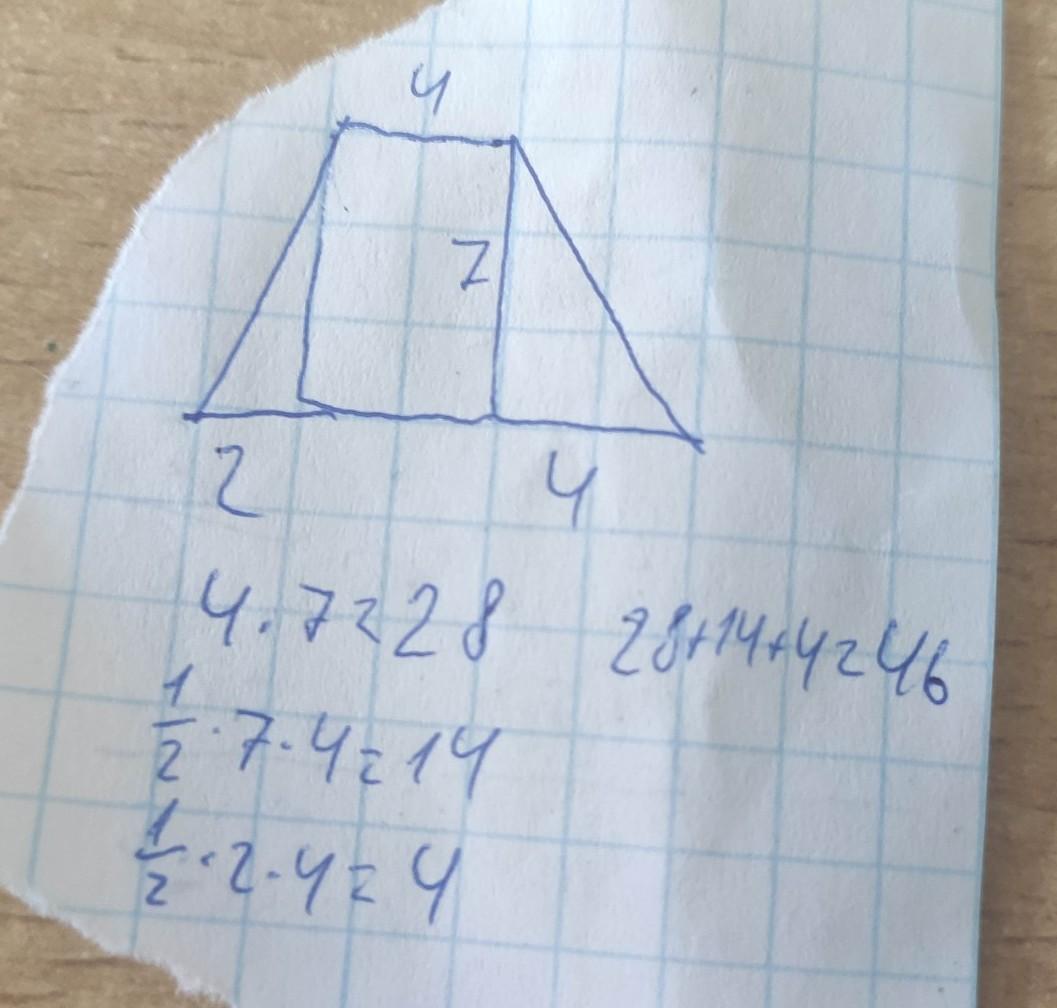 4
7
2 4
4 · 7 = 28 28+14+4=46
1/2 · 7 · 4 = 14
1/2 · 2 · 4 = 4